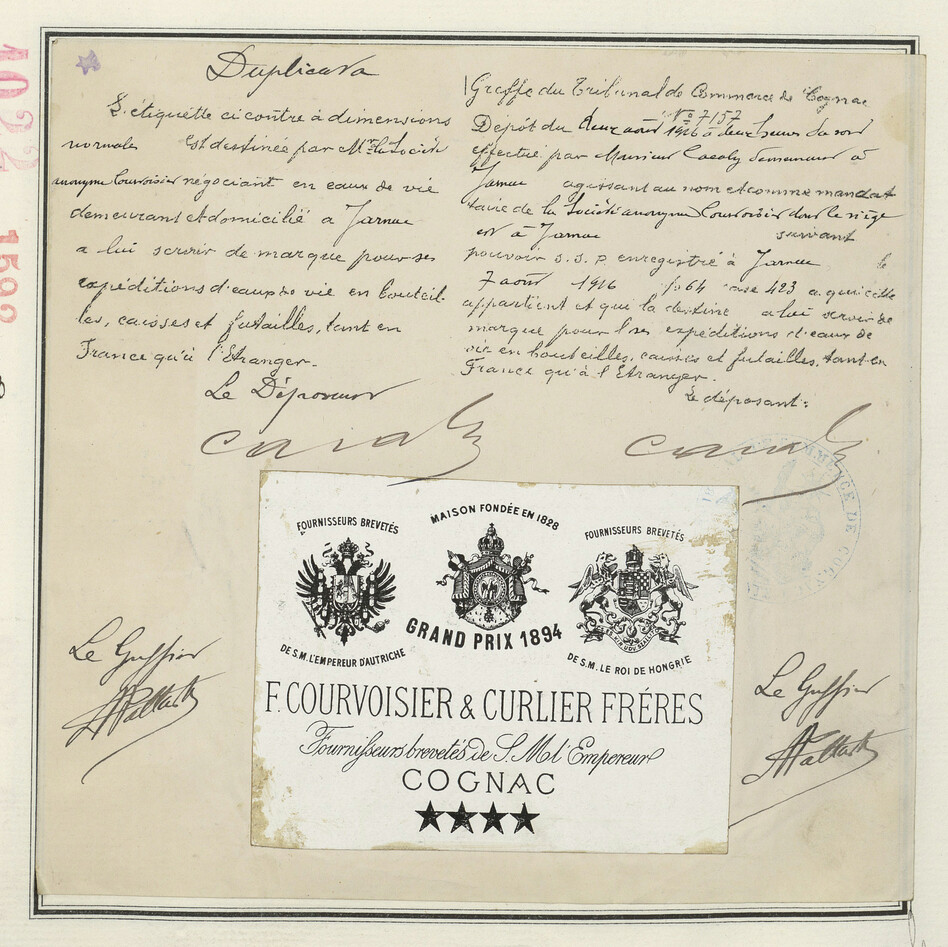 Duplicata
L'étiquette ci contre à dimensions
normales est destinée par Mr la Société
anonyme Courvoisier négociant en eaux de vie
demeurant et domicilié à Jarnac
a lui servir de marque pour ses
expéditions d'eaux de vie en bouteil-
les, caisses et futailles, tant en
France qu'à l'Etranger.
Le Déposant
Greffe du Tribunal de Commerce de Cognac
No 7157
Dépôt du deux août 1916 à deux heures du soir
effectué par Monsieur demeurant à
Jarnac agissant au nom et comme mandat
taire de la Société anonyme Courvoisier dont le siège
est à Jarnac suivant
pouvoir s.s.p. enregistré à Jarnac le
7 août 1916 fo 64 case 423 a qui cette
appartient et que la destine a lui servir de
marque pour ses expéditions d'eaux de
vie en bouteilles, caisses et futailles, tant en
France qu'à l'Etranger.
Le déposant:
FOURNISSEURS BREVETÉS
DE S.M. L'EMPEREUR D'AUTRICHE
MAISON FONDÉE EN 1828
GRAND PRIX 1894
FOURNISSEURS BREVETÉS
DE S.M. LE ROI DE HONGRIE
F. COURVOISIER & CURLIER FRÉRES
Fournisseurs brevetés de S. M. l'Empereur
COGNAC
Le Greffier
Le Greffier
COMMERCE DE COGNAC
1022
1592